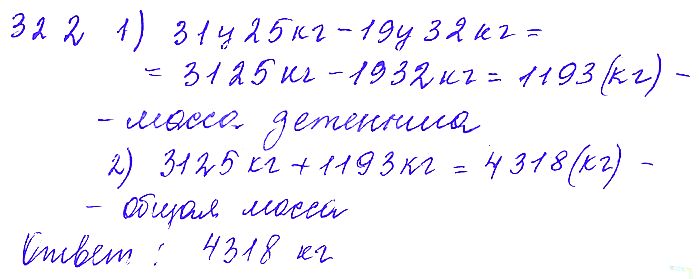 322 1) 31ц25кг-19ц32кг=
=3125кг-1932кг=1193(кг)-
-масса детеныша
2) 3125кг+1193кг=4318(кг)-
-общая масса
Ответ: 4318 кг